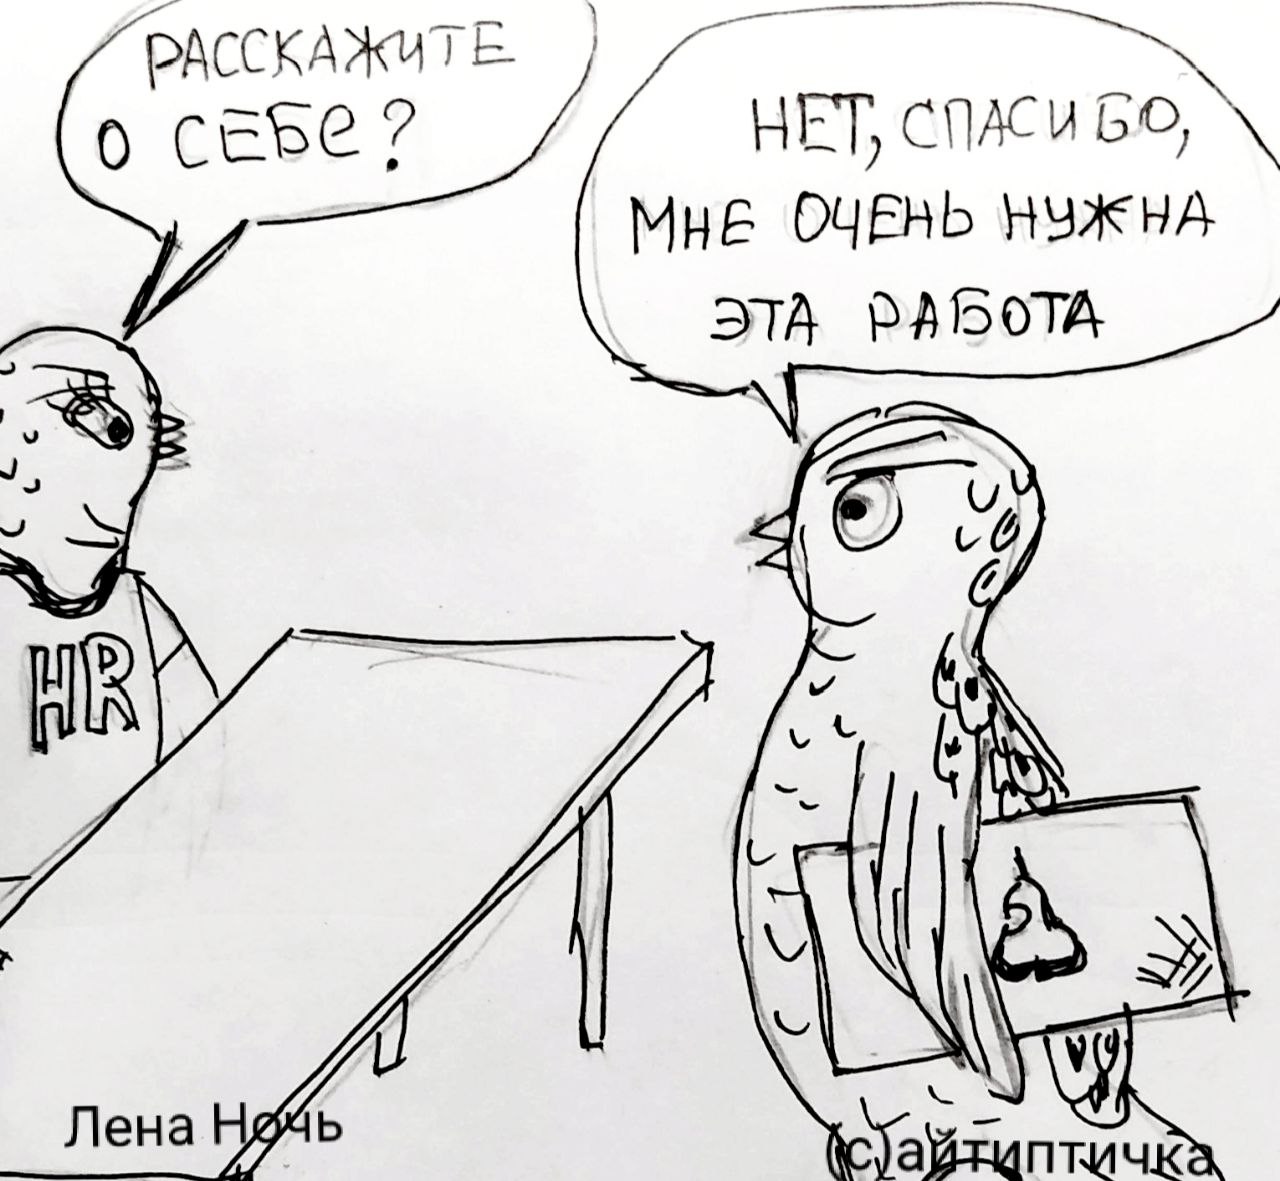 РАССКАЖИТЕ
О СЕБЕ?
НЕТ, СПАСИБО,
МНЕ ОЧЕНЬ НУЖНА
ЭТА РАБОТА
HR
Лена Ночь
(с)айтиптичка